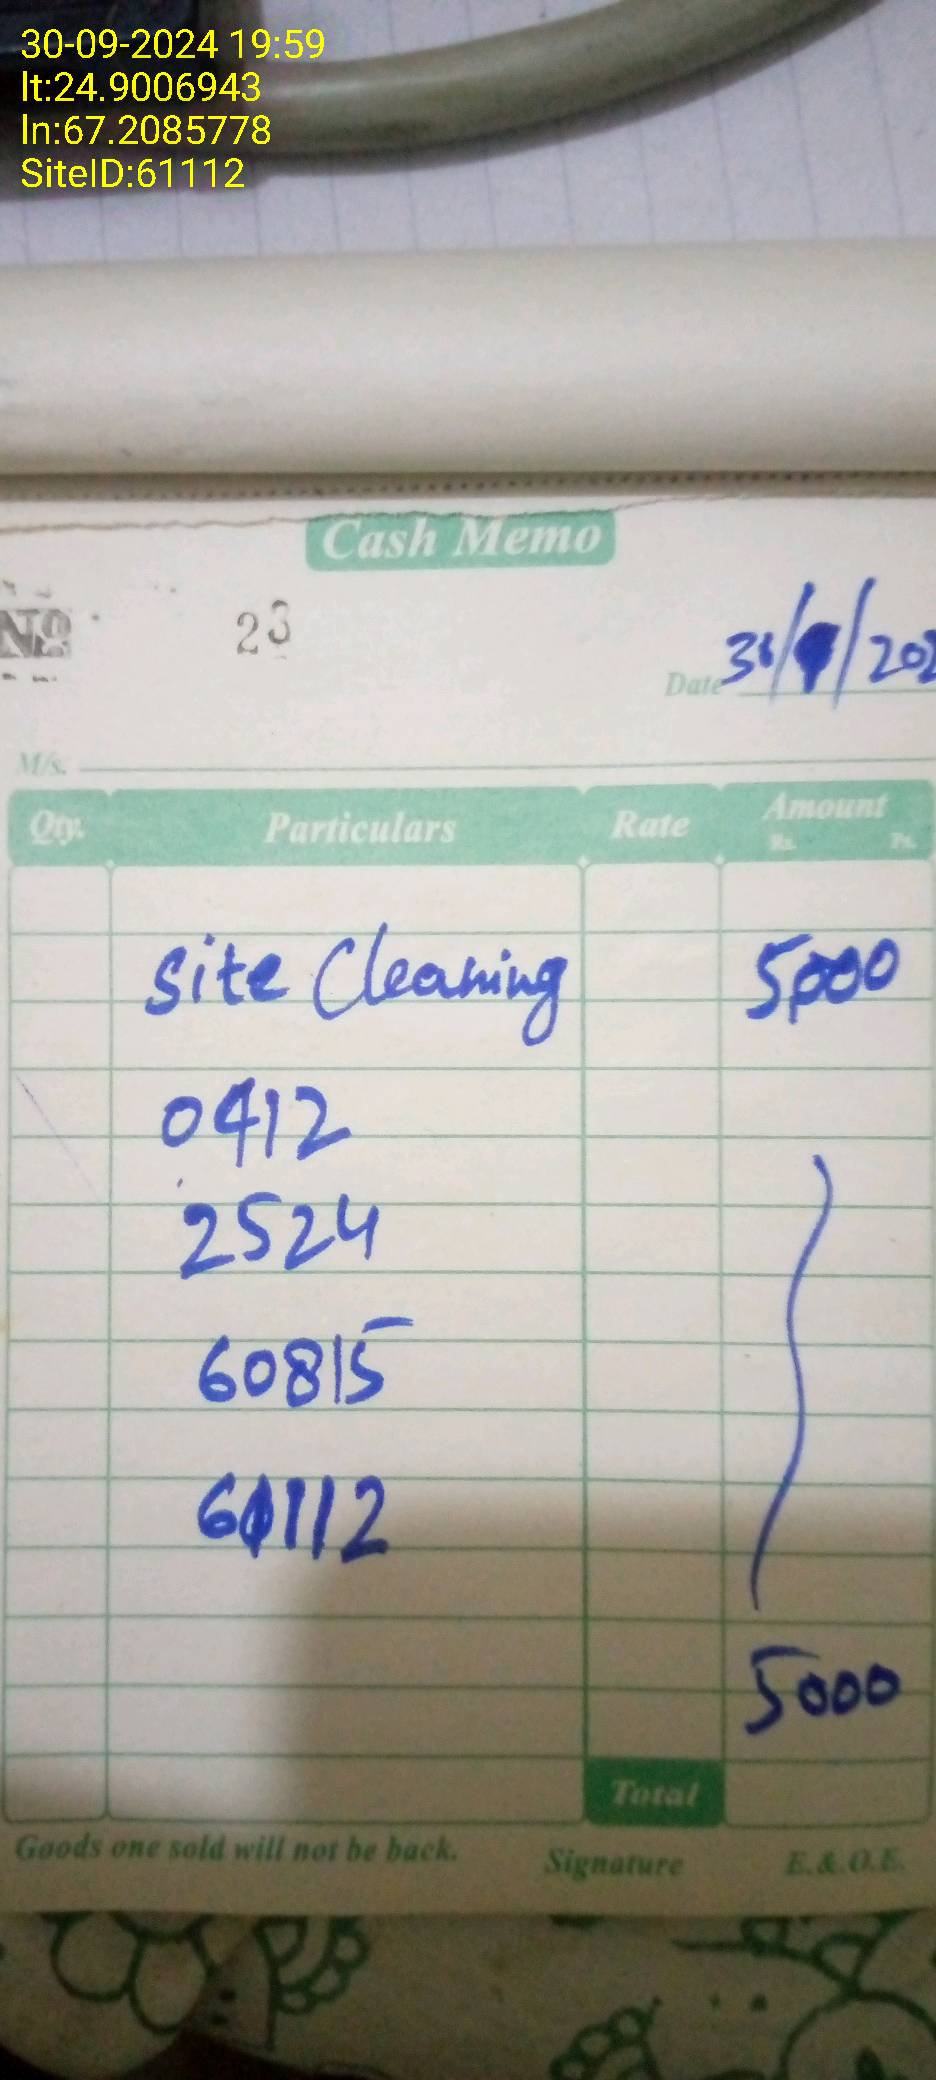 30-09-2024 19:59
lt:24.9006943
ln:67.2085778
SiteID:61112
Cash Memo
No 23
Date 30/9/202
M/s.
Qty. Particulars Rate Amount
Rs. Ps.
Site Cleaning 5000
0412
2524
60815
61112
5000
Total
Goods one sold will not be back.
Signature E.&.O.E.